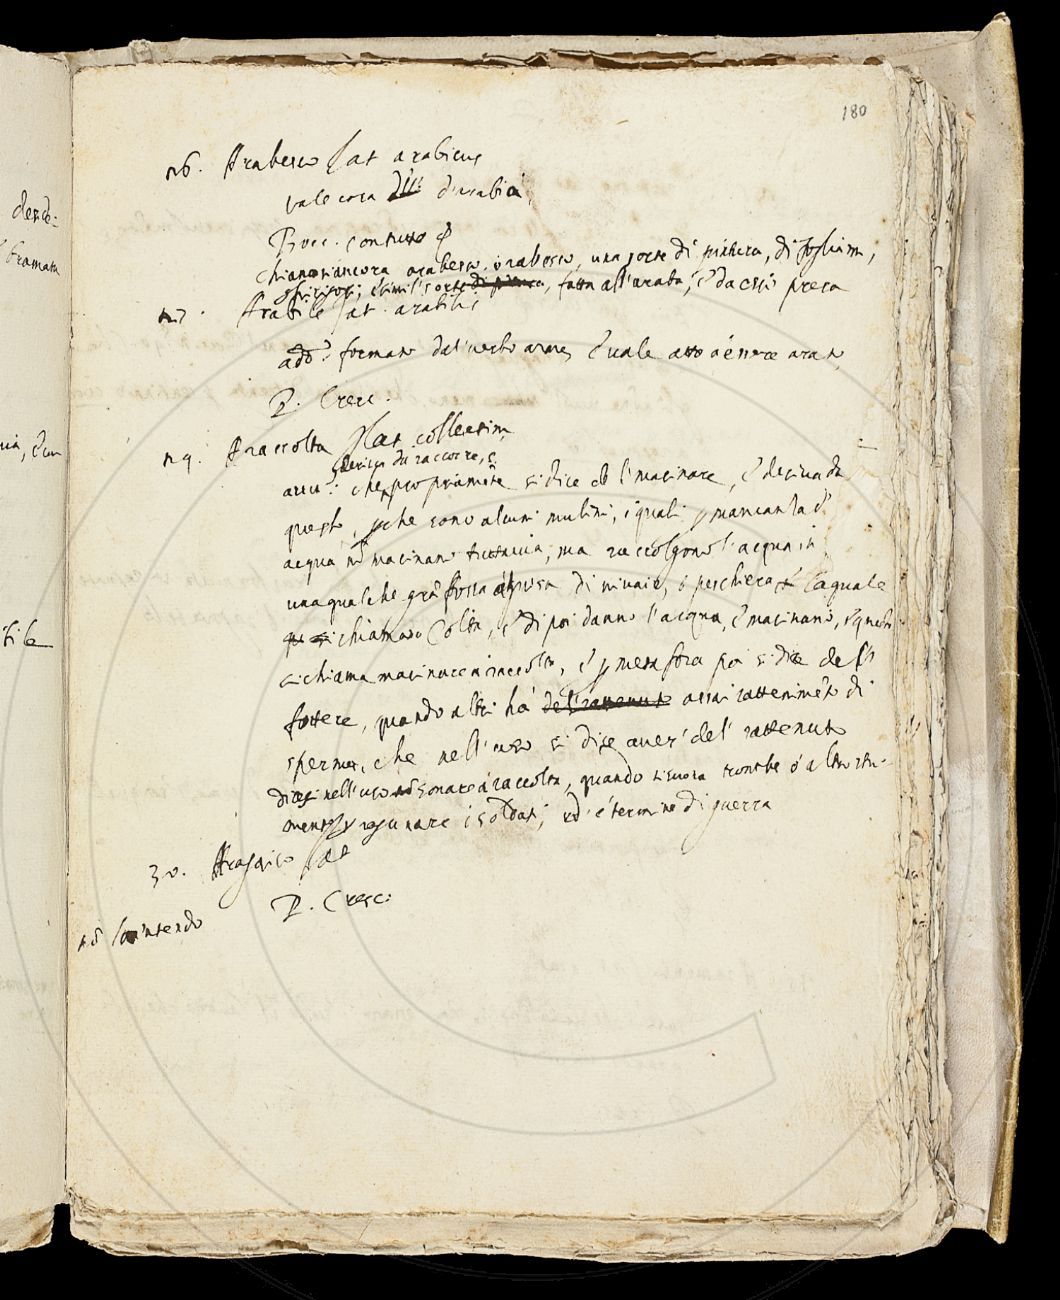 180
26. Arabesco lat arabicus
vale cosa d'arabia,
Bocc.
chiamasi ancora arabesco, o rabesco, una sorte di pittura, di fogliami,
fatta all'araba, è da essi presa
27. Arabile lat. arabilis
add.° formato dal verbo arare, è vale atto a essere arato,
P. Cresc.
29. Araccolta lat. collectim
deriva da raccorre, e
avv.° che propriamẽte si dice del macinare, è deriva da
questo, che sono alcuni mulini, i quali mancanza d'
acqua nõ macinano tuttavia, ma raccolgono l'acqua in
una qualche grã fossa à guisa di vivaio, ò peschiera laquale
chiamano Colta, è di poi danno l'acqua, è macinano, è questo
si chiama macinare à raccolta, è metafora poi si dice del
fottere, quando altri hà assai rattenimẽto di
sperma, che nell'uso si dice aver del rattenuto
dicesi nell'uso sonare à raccolta, quando si suona trombe ò altro stru-
mento ragunare i soldati, ed è termine di guerra
30. lat
P. Cresc.
nõ lo intendo